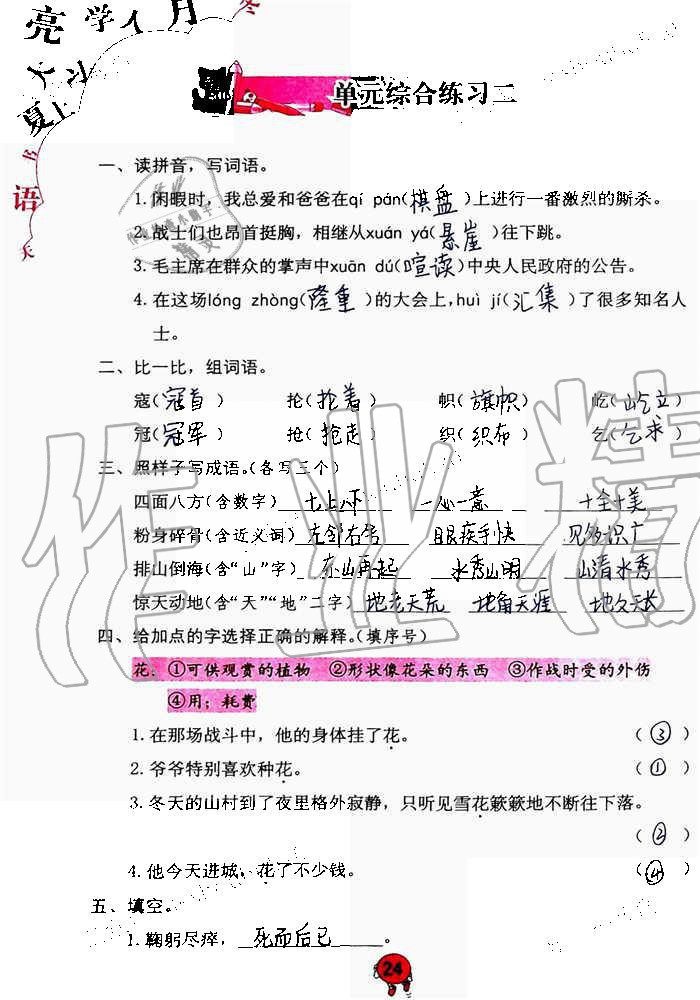 亮 学 人 月 冬
夏
书
语
天
单元综合练习二
一、读拼音，写词语。
1.闲暇时，我总爱和爸爸在qí pán(棋盘)上进行一番激烈的厮杀。
2.战士们也昂首挺胸，相继从xuán yá(悬崖)往下跳。
3.毛主席在群众的掌声中xuān dú(宣读)中央人民政府的公告。
4.在这场lóng zhòng(隆重)的大会上，huì jí(汇集)了很多知名人
士。
二、比一比，组词语。
寇(寇首) 抡(抡着) 帜(旗帜) 屹(屹立)
冠(冠军) 抢(抢走) 织(织布) 乞(乞求)
三、照样子写成语。(各写三个)
四面八方(含数字) 七上八下 一心一意 十全十美
粉身碎骨(含近义词) 左邻右舍 眼疾手快 见多识广
排山倒海(含“山”字) 东山再起 水秀山明 山清水秀
惊天动地(含“天”“地”二字) 地老天荒 地角天涯 地久天长
四、给加点的字选择正确的解释。(填序号)
花：①可供观赏的植物 ②形状像花朵的东西 ③作战时受的外伤
④用；耗费
1.在那场战斗中，他的身体挂了花。 (③)
2.爷爷特别喜欢种花。 (①)
3.冬天的山村到了夜里格外寂静，只听见雪花簌簌地不断往下落。
(②)
4.他今天进城，花了不少钱。 (④)
五、填空。
1.鞠躬尽瘁，死而后已。
24
作业精